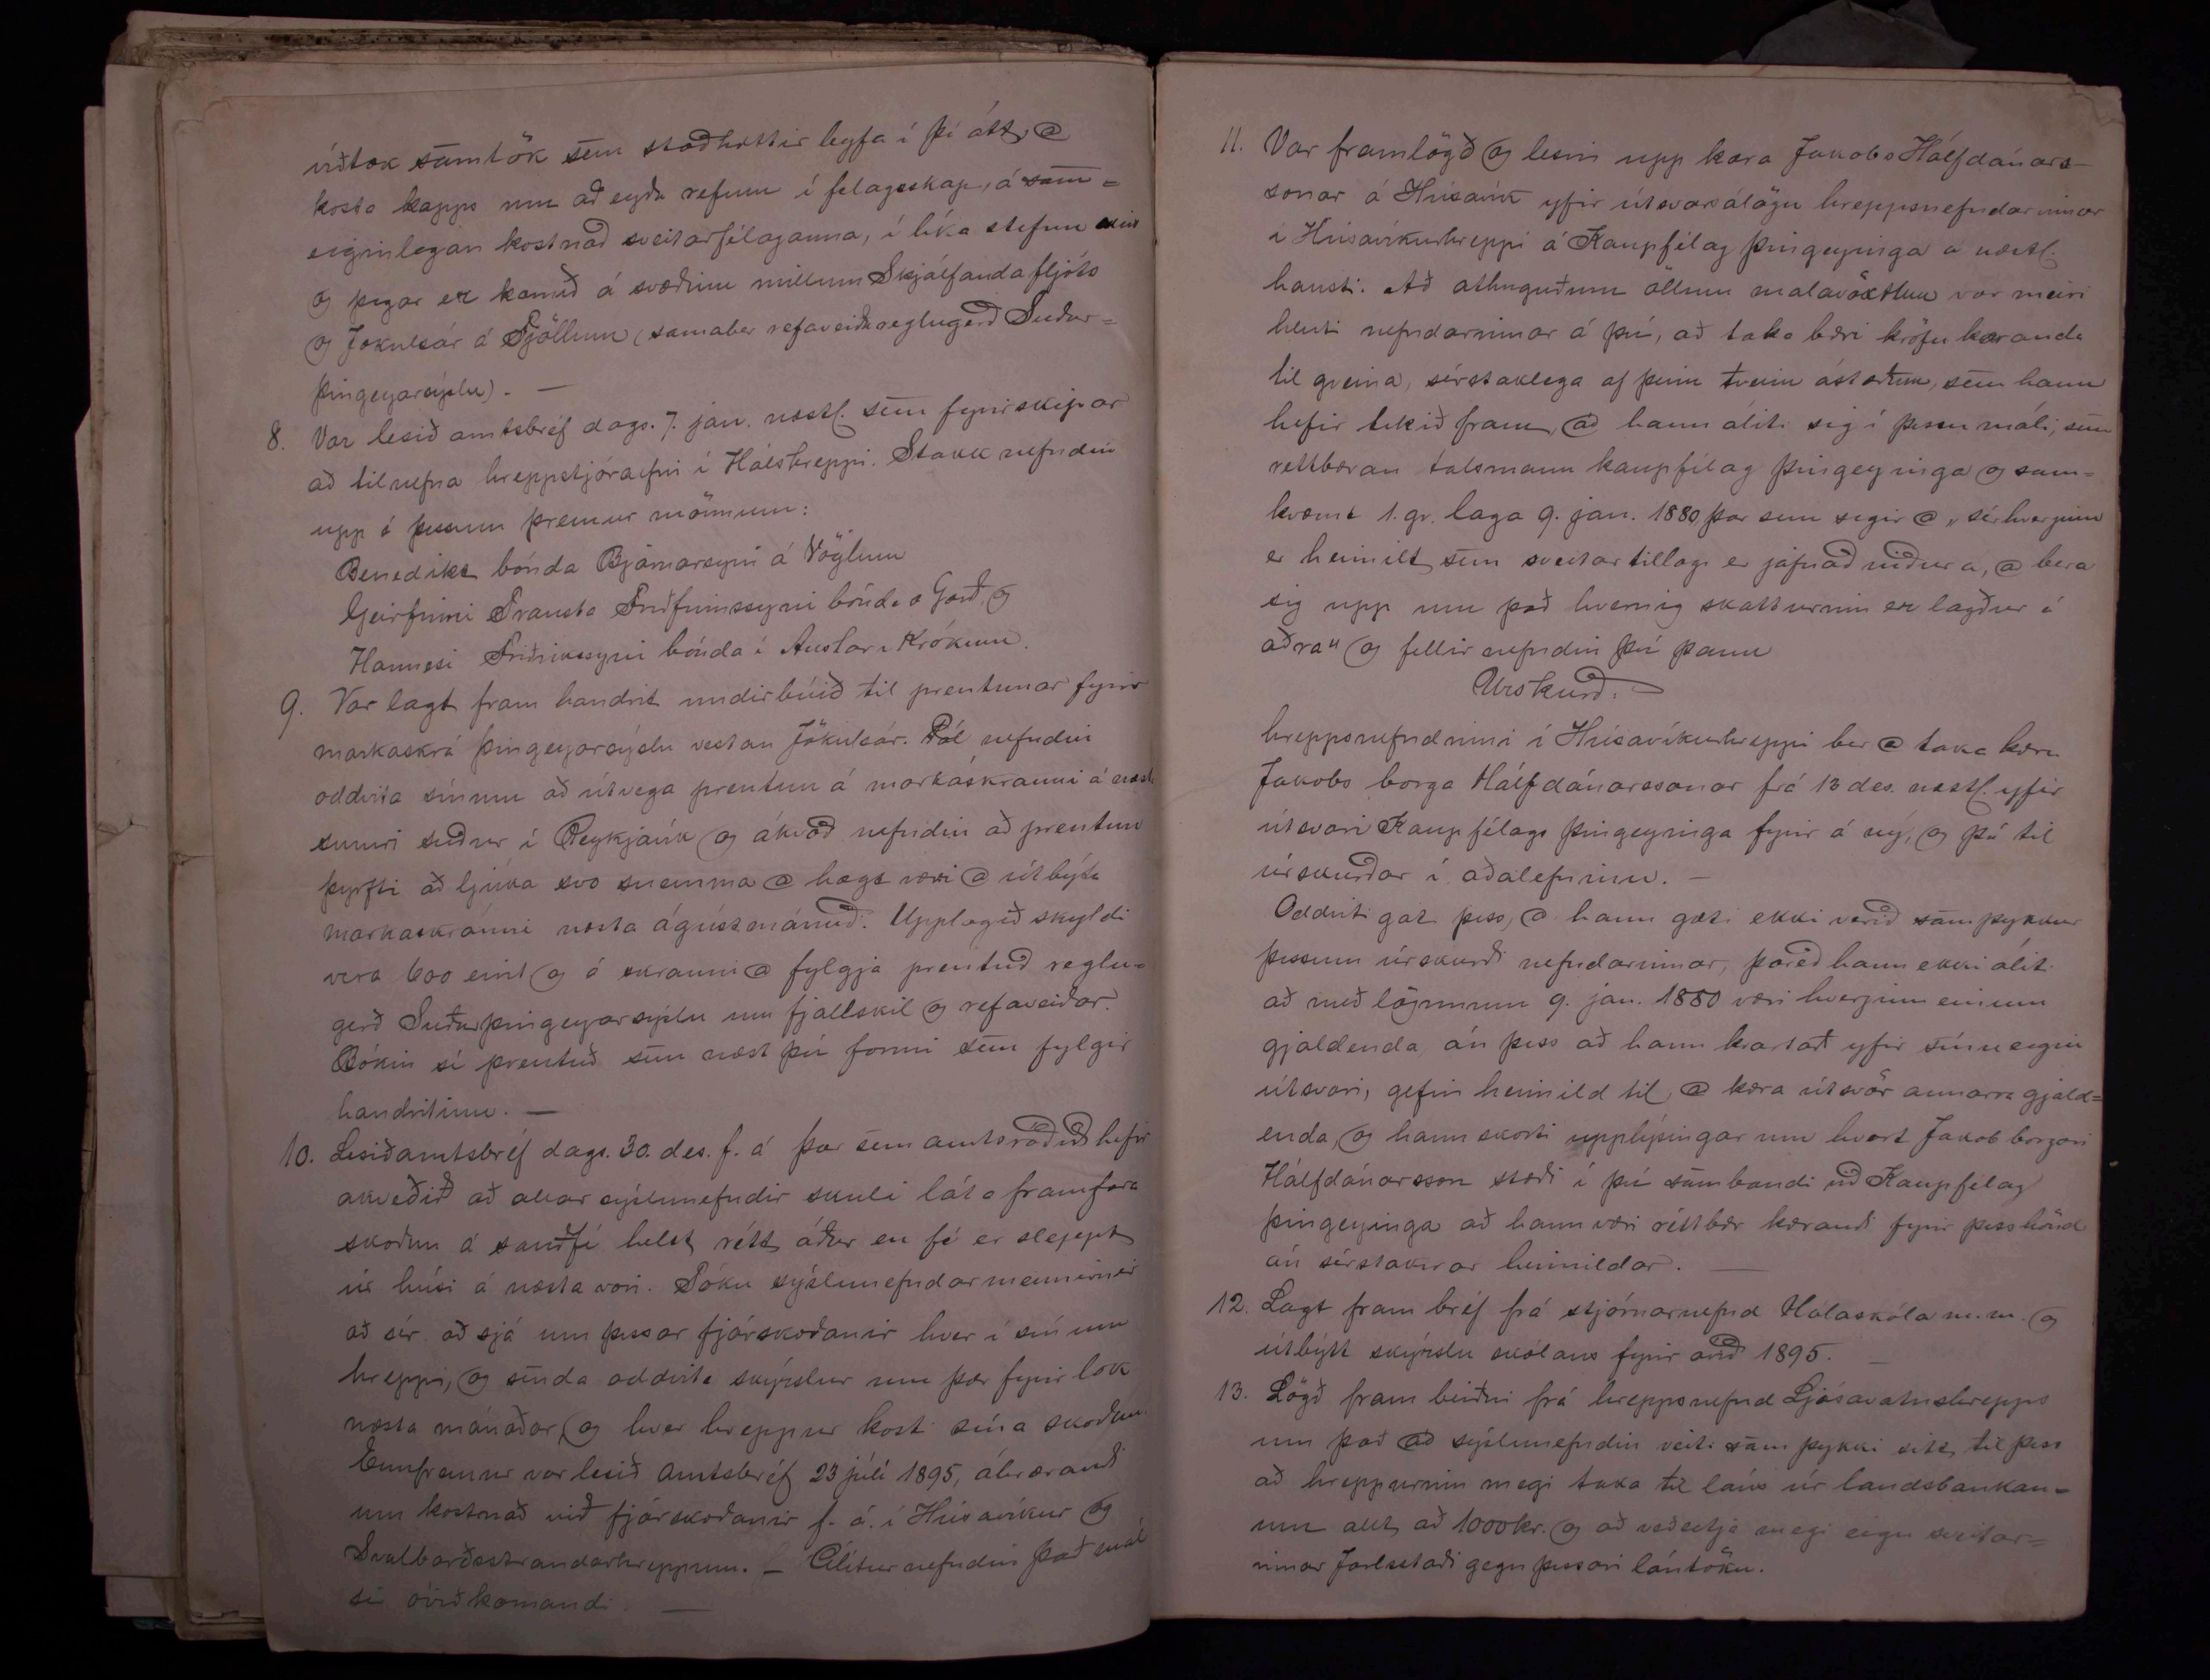 víðtæk samtök sem staðhættir leyfa í þá átt, @
kosta kapps um að eyða refum í félagsskap, á sam=
eiginlegan kostnað sveitarfélaganna, í líka stefnu eins
og þegar er komið á svæðinu millum Skjálfandafljóts
og Jökulsár á Fjöllum (samanber refaveiðareglugerð Suður=
þingeyarsýslu). —
8. Var lesið amtsbréf dags. 7. jan. næstl. sem fyrirskipar
að tilnefna hreppstjóraefni í Hálshreppi. Stakk nefndin
upp á þessum þremur mönnum:
Benedikt bónda Bjarnarsyni á Vöglum
Geirfinni Trausta Friðfinnssyni bónda á Garði, og
Hannesi Friðrikssyni bónda í Austari Krókum.
9. Var lagt fram handrit undirbúið til prentunar fyrir
markaskrá þingeyarsýslu vestan Jökulsár. Fól nefndin
oddvita sínum að útvega prentun á markaskránni á næsta
sumri suður í Reykjavík og ákvað nefndin að prentun
þyrfti að ljúka svo snemma @ hægt væri @ útbýta
markaskránni næsta ágústmánuð. Upplagið skyldi
vera 600 eint og á skránni @ fylgja prentuð reglu=
gerð Suðurþingeyarsýslu um fjallskil og refaveiðar.
Bókin sé prentuð sem næst því formi sem fylgir
handritinu. —
10. Lesið amtsbréf dags. 30. des. f. á þar sem amtsráðið hefir
ákveðið að allar sýslunefndir skuli láta framfara
skoðun á sauðfé helst rétt áður en fé er sleppt
úr húsi á næsta vori. Tóku sýslunefndarmennirnir
að sér að sjá um þessar fjárskoðanir hver í sínum
hreppi, og senda oddvita skýrslur um þær fyrir lok
næsta mánaðar, og hver hreppur kosti sína skoðun.
Ennfremur var lesið amtsbréf 23 júlí 1895, áhrærandi
um kostnað við fjárskoðanir f. á. í Húsavíkur og
Svalbarðsstrandarhreppum. — Álítur nefndin það mál
sé óviðkomandi. —
11. Var framlögð og lesin upp kæra Jakobs Hálfdánars-
sonar á Húsavík yfir útsvarsálögu hreppsnefndarinnar
í Húsavíkurhreppi á Kaupfélag þingeyinga á næstl.
hausti. Að athuguðum öllum málavöxtum var meiri
hluti nefndarinnar á því, að taka bæri kröfu kæranda
til greina, sérstaklega af þeim tveim ástæðum, sem hann
hefir tekið fram, að hann áliti sig í þessu máli, sem
réttbæran talsmann kaupfélag þingeyinga og sam=
kvæmt 1. gr. laga 9. jan. 1880 þar sem segir @ „sérhverjum
er heimilt sem sveitartillagi er jafnað niður á, @ bera
sig upp um það hvernig skatturinn er lagður á
aðra“ og fellir nefndin því þann
Úrskurð. —
hreppsnefndinni í Húsavíkurhreppi ber @ taka kæru
Jakobs borga Hálfdánarssonar frá 13 des. næstl. yfir
útsvari Kaupfélags þingeyinga fyrir á ný, og þá til
úrskurðar í aðalefninu. —
Oddviti gat þess, @ hann gæti ekki verið samþykkur
þessum úrskurði nefndarinnar, þareð hann ekki áliti
að með lögunum 9. jan. 1880 væri hverjum einum
gjaldenda, án þess að hann kvartaði yfir sínu eigin
útsvari, gefin heimild til, @ kæra útsvör annarra gjald=
enda, og hann skorti upplýsingar um hvort Jakob borgari
Hálfdánarsson stæði í því sambandi við Kaupfélag
þingeyinga að hann væri réttbær kærandi fyrir þess hönd
án sérstakrar heimildar. —
12. Lagt fram bréf frá stjórnarnefnd Hólaskóla m. m. og
útbýtt skýrslu skólans fyrir árið 1895. —
13. Lögð fram beiðni frá hreppsnefnd Ljósavatnshrepps
um það að sýslunefndin veiti samþykki sitt, til þess
að hreppurinn megi taka til láns úr landsbankan=
um allt að 1000 kr. og að veðsetja megi eign sveitar=
innar Jarlsstaði gegn þessari lántöku.